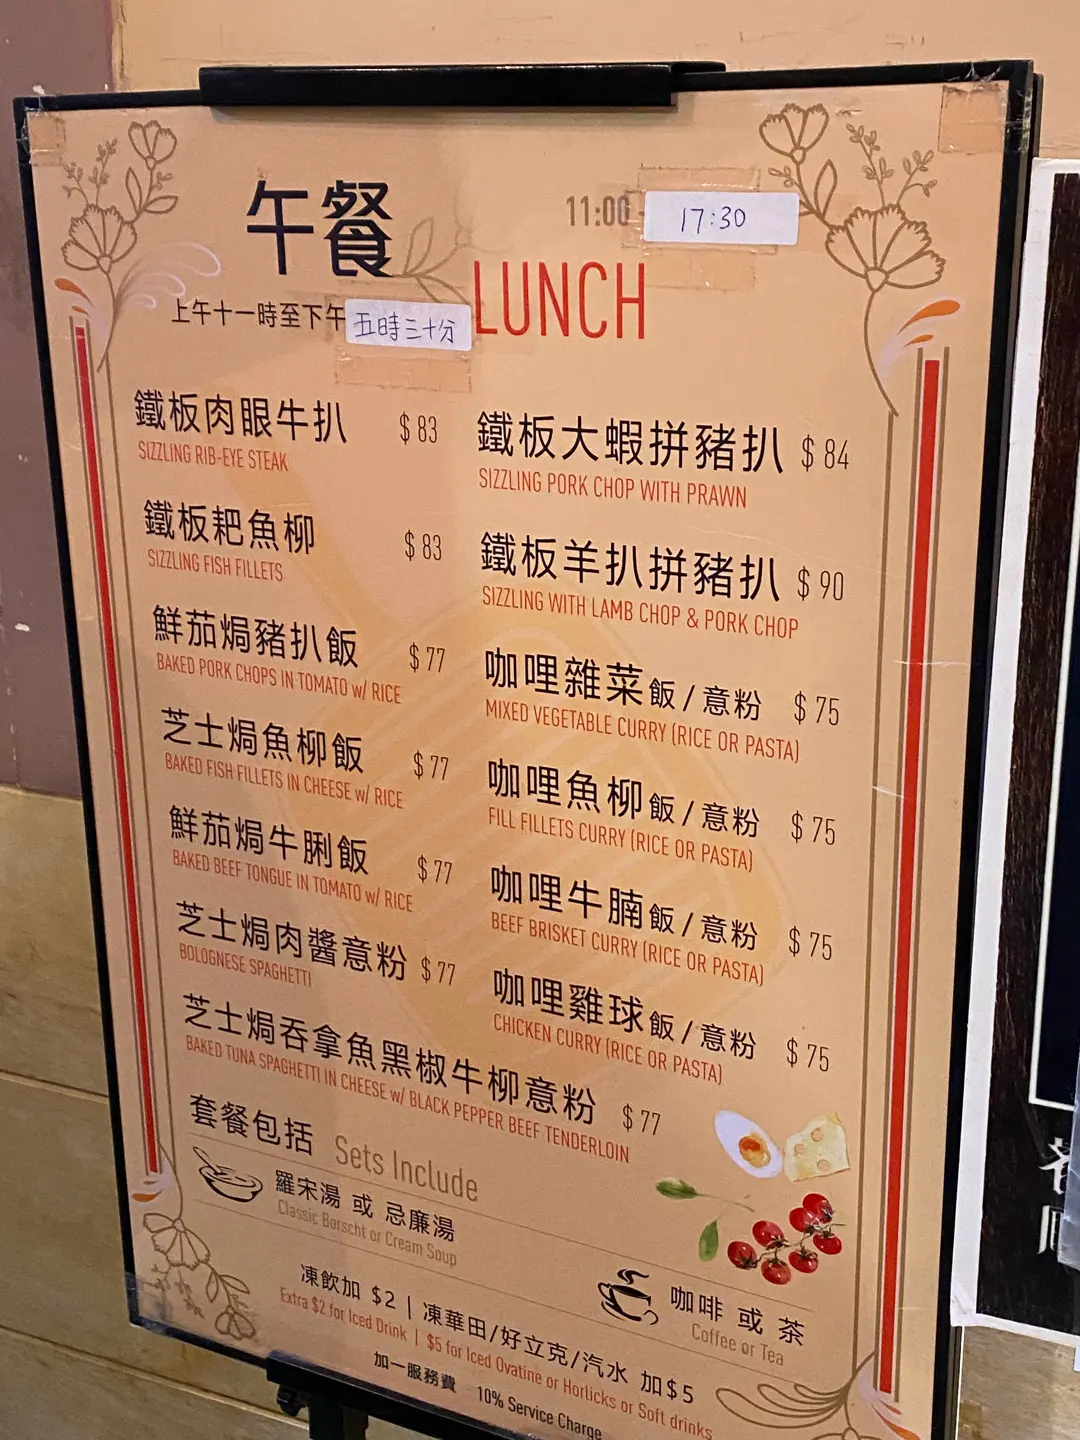 午餐
11:00 - 17:30
LUNCH
上午十一時至下午五時三十分
鐵板肉眼牛扒 $83
SIZZLING RIB-EYE STEAK
鐵板耙魚柳 $83
SIZZLING FISH FILLETS
鮮茄焗豬扒飯 $77
BAKED PORK CHOPS IN TOMATO w/ RICE
芝士焗魚柳飯 $77
BAKED FISH FILLETS IN CHEESE w/ RICE
鮮茄焗牛脷飯 $77
BAKED BEEF TONGUE IN TOMATO w/ RICE
芝士焗肉醬意粉 $77
BOLOGNESE SPAGHETTI
芝士焗吞拿魚黑椒牛柳意粉 $77
BAKED TUNA SPAGHETTI IN CHEESE w/ BLACK PEPPER BEEF TENDERLOIN
鐵板大蝦拼豬扒 $84
SIZZLING PORK CHOP WITH PRAWN
鐵板羊扒拼豬扒 $90
SIZZLING WITH LAMB CHOP & PORK CHOP
咖哩雜菜飯/意粉 $75
MIXED VEGETABLE CURRY (RICE OR PASTA)
咖哩魚柳飯/意粉 $75
FILL FILLETS CURRY (RICE OR PASTA)
咖哩牛腩飯/意粉 $75
BEEF BRISKET CURRY (RICE OR PASTA)
咖哩雞球飯/意粉 $75
CHICKEN CURRY (RICE OR PASTA)
套餐包括 Sets Include
羅宋湯 或 忌廉湯
Classic Borscht or Cream Soup
咖啡 或 茶
Coffee or Tea
凍飲加 $2 | 凍華田/好立克/汽水 加$5
Extra $2 for Iced Drink | $5 for Iced Ovatine or Horlicks or Soft drinks
加一服務費 10% Service Charge